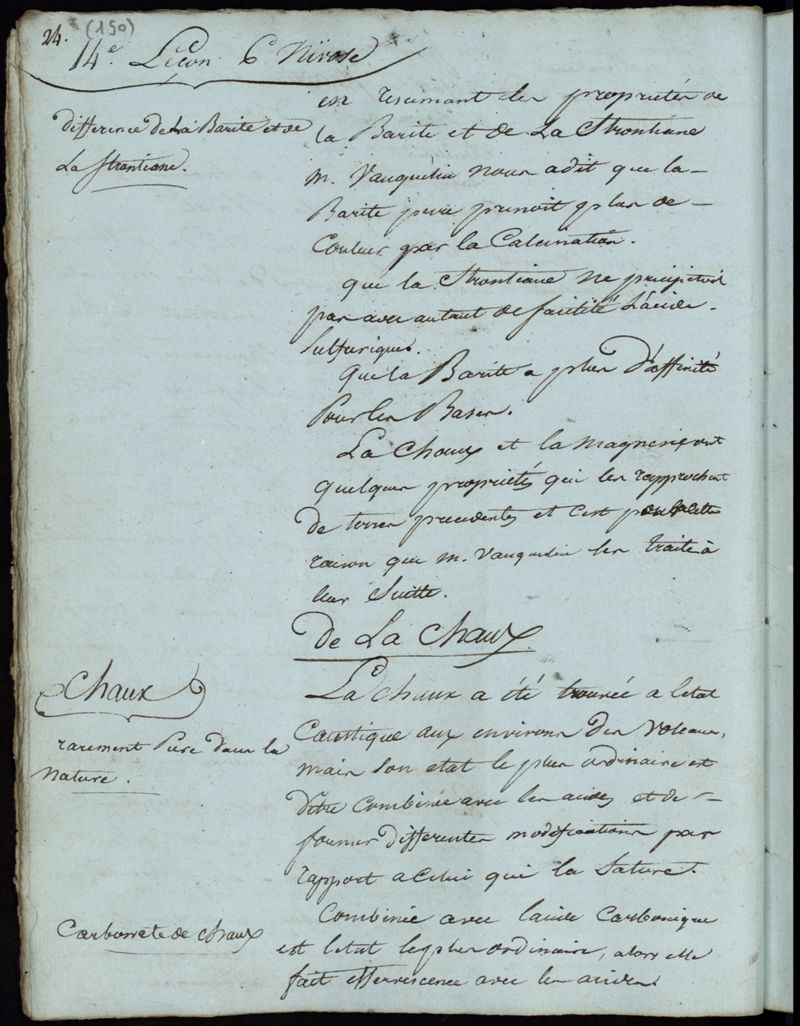 24. (150)
14e Leçon 6 Nivose
difference de La Barite et de
La Strontiane.
en resumant les proprietés de
la Barite et de La Strontiane
m. Vauquelin nous a dit que la
Barite pure prenoit plus de
Couleur par la Calcination.
que la Strontiane ne precipitoit
pas avec autant de facilité L'acide
Sulfurique.
que la Barite a plus D'affinité
Pour les Bases.
La Chaux et la magnesie ont
quelques proprietés qui les rapprochent
De terres precedentes et c'est pour cette
raison que m. Vauquelin les traite à
leur Suitte.
De La Chaux
Chaux
rarement Pure dans la
Nature.
La chaux a été trouvée a letat
Caustique aux environs des Volcans,
mais son etat le plus ordinaire est
D'être Combinée avec les acides et de
former differentes modifications par
rapport a Celui qui la Sature.
Carbonete de chaux
Combinée avec lacide Carbonique
est letat le plus ordinaire, alors elle
fait effervescence avec les acides.